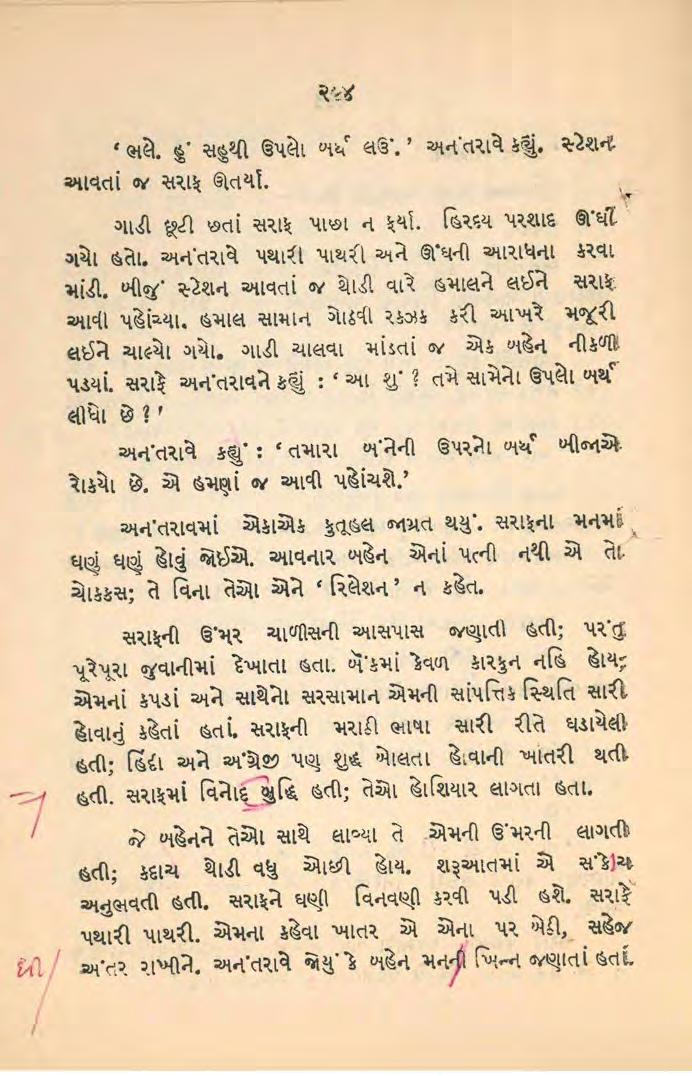 ૨૯૪
‘ ભલે. હું સહુથી ઉપલો બર્થ લઉં. ’ અનંતરાવે કહ્યું. સ્ટેશન
આવતાં જ સરાફ ઊતર્યા.
ગાડી છૂટી છતાં સરાફ પાછા ન ફર્યા. હિરદય પરશાદ ઊંઘી
ગયો હતો. અનંતરાવે પથારી પાથરી અને ઊંઘની આરાધના કરવા
માંડી. બીજું સ્ટેશન આવતાં જ થોડી વારે હમાલને લઈને સરાફ
આવી પહોંચ્યા. હમાલ સામાન ગોઠવી રકઝક કરી આખરે મજૂરી
લઈને ચાલ્યો ગયો. ગાડી ચાલવા માંડતાં જ એક બહેન નીકળી
પડયાં. સરાફે અનંતરાવને કહ્યું : ‘ આ શું ? તમે સામેનો ઉપલો બર્થ
લીધો છે ? ’
અનંતરાવે કહ્યું : ‘ તમારા બંનેની ઉપરનો બર્થ બીજાએ
રોકયો છે. એ હમણાં જ આવી પહોંચશે.’
અનંતરાવમાં એકાએક કુતૂહલ જાગ્રત થયું. સરાફના મનમાં
ઘણું ઘણું હોવું જોઈએ. આવનાર બહેન એનાં પત્ની નથી એ તો
ચોકકસ; તે વિના તેઓ એને ‘ રિલેશન ’ ન કહેત.
સરાફની ઉંમર ચાળીસની આસપાસ જણાતી હતી; પરંતુ
પૂરેપૂરા જુવાનીમાં દેખાતા હતા. બેંકમાં કેવળ કારકુન નહિ હોય;
એમનાં કપડાં અને સાથેનો સરસામાન એમની સાંપત્તિક સ્થિતિ સારી
હોવાનું કહેતાં હતાં. સરાફની મરાઠી ભાષા સારી રીતે ઘડાયેલી
હતી; હિંદી અને અંગ્રેજી પણ શુદ્ધ બોલતા હોવાની ખાતરી થતી
હતી. સરાફમાં વિનોદ બુદ્ધિ હતી; તેઓ હોશિયાર લાગતા હતા.
જે બહેનને તેઓ સાથે લાવ્યા તે એમની ઉંમરની લાગતી
હતી; કદાચ થોડી વધુ ઓછી હોય. શરૂઆતમાં એ સંકોચ
અનુભવતી હતી. સરાફને ઘણી વિનવણી કરવી પડી હશે. સરાફે
પથારી પાથરી. એમના કહેવા ખાતર એ એના પર બેઠી, સહેજ
અંતર રાખીને. અનંતરાવે જોયું કે બહેન મનની ખિન્ન જણાતાં હતાં.